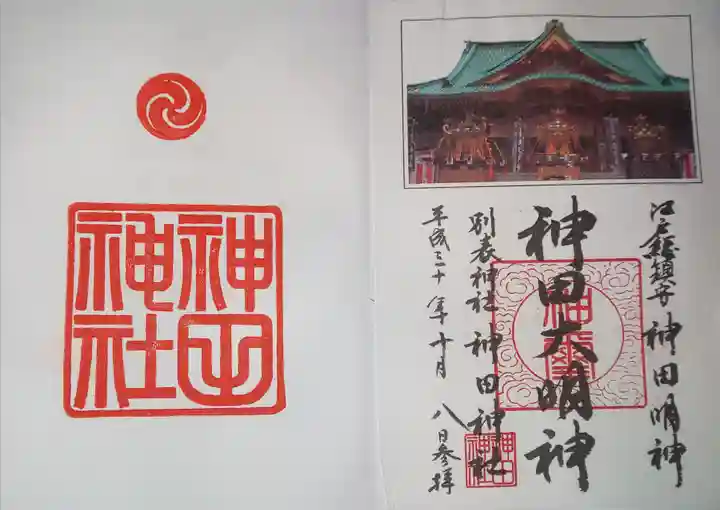 江戸総鎮守 神田明神
神田大明神
別表神社 神田神社
平成三十年十月 八日参拝
神田
神社
神田
神社